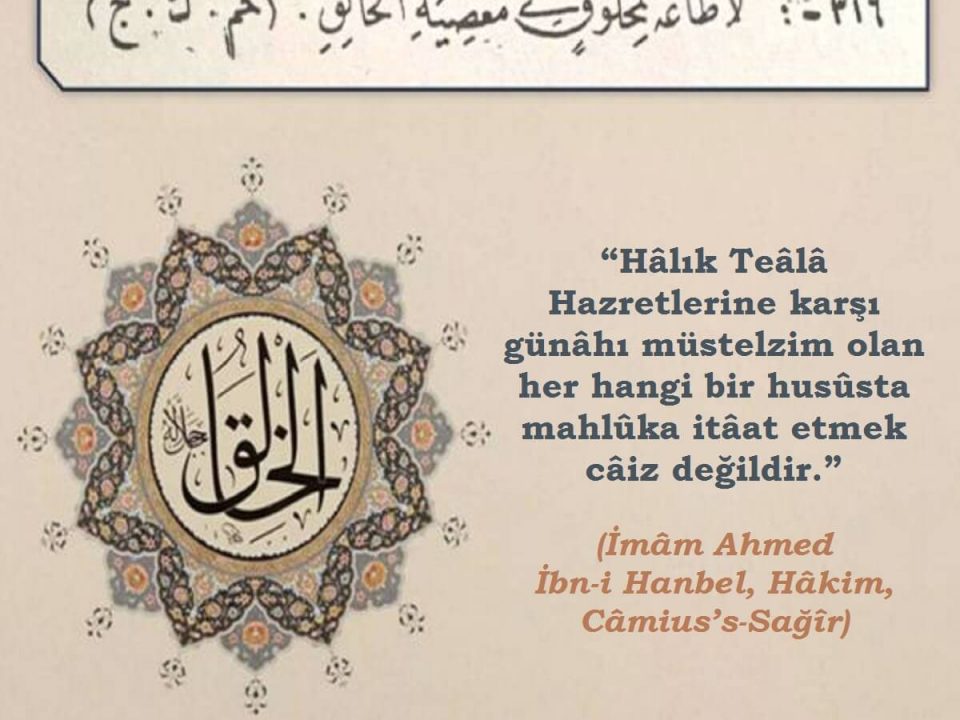 ٣١٦ - : لَا طَاعَةَ لِمَخْلُوقٍ فِي مَعْصِيَةِ الْخَالِقِ . (حم . ك . ج)
“Hâlık Teâlâ
Hazretlerine karşı
günâhı müstelzim olan
her hangi bir husûsta
mahlûka itâat etmek
câiz değildir.”
الخالق
جل جلاله
(İmâm Ahmed
İbn-i Hanbel, Hâkim,
Câmius’s-Sağîr)